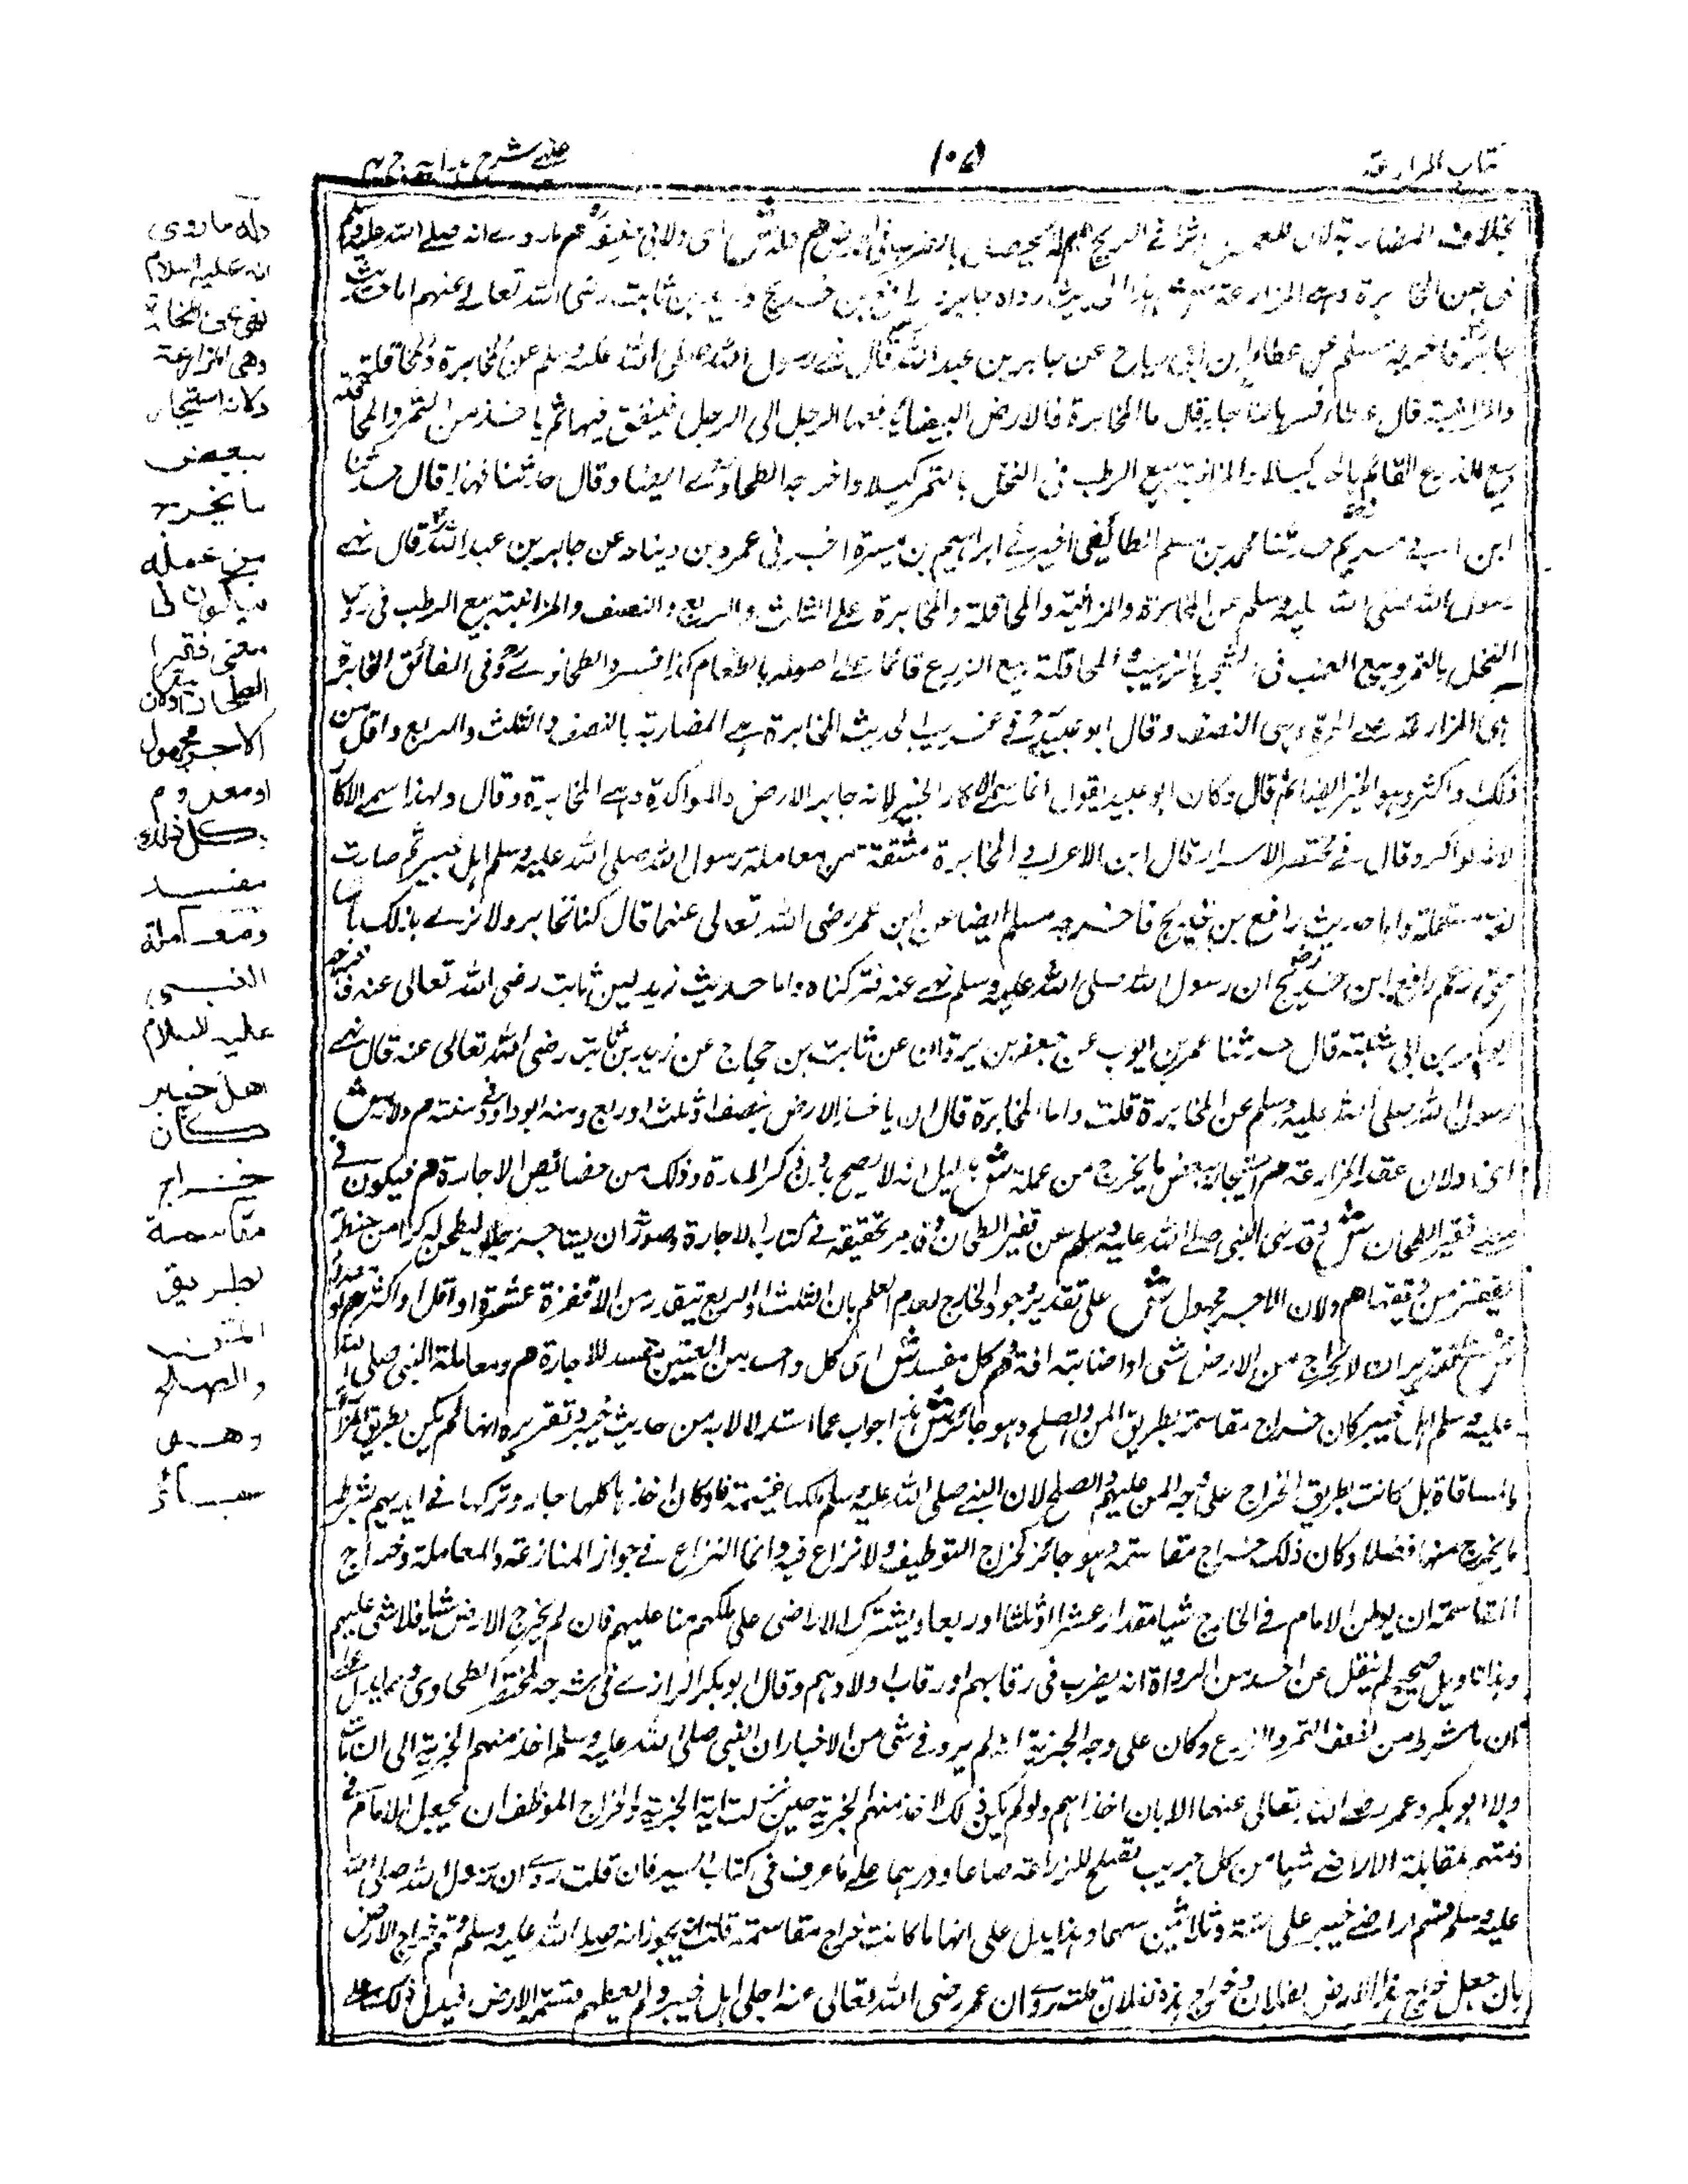 كتاب المزارعة
١٠٥
عينى شرح هدايه ج ٤
بخلاف المضاربة لان للعمل اثرا فى الربح م وله ش اى ولابى حنيفة م ما روى انه صلى الله عليه وسلم
نهى عن المخابرة وهى المزارعة ش هذا الحديث رواه جابر ورافع بن خديج وزيد بن ثابت رضى الله تعالى عنهم اما حديث
جابر فاخرجه مسلم عن عطاء بن ابى رباح عن جابر بن عبد الله قال نهى رسول الله صلى الله عليه وسلم عن المخابرة والمحاقلة
والمزابنة قال عطاء فسرها لنا جابر قال اما المخابرة فالارض البيضاء يدفعها الرجل الى الرجل فينفق فيها ثم ياخذ من التمر والمحاقلة
بيع الزرع القائم بالحب كيلا والمزابنة بيع الرطب فى النخل بالتمر كيلا واخرجه الطحاوى ايضا وقال حدثنا فهد قال حدثنا
ابن ابى مريم حدثنا محمد بن مسلم الطائفى اخبرنى ابراهيم بن ميسرة اخبرنى عمرو بن دينار عن جابر بن عبد الله قال نهى
رسول الله صلى الله عليه وسلم عن المخابرة والمزابنة والمحاقلة والمخابرة على الثلث والربع والنصف والمزابنة بيع الرطب فى رؤس
النخل بالتمر وبيع العنب فى الشجر بالزبيب والمحاقلة بيع الزرع قائما على اصوله بالطعام كذا فسره الطحاوى وفى الفائق المخابرة
هى المزارعة على الخبرة وهى النصف وقال ابو عبيد فى غريب الحديث المخابرة هى المضاربة بالنصف والثلث والربع واقل من
ذلك واكثر وهو الخبر ايضا ثم قال وكان ابو عبيد يقول انما سمى الاكار الخبير لانه يخابر الارض والمواكرة هى المخابرة وقال ولهذا سمى الاكار
لانه يواكر وقال فى مختصر الاسرار قال ابن الاعرابى المخابرة مشتقة من معاملة رسول الله صلى الله عليه وسلم اهل خيبر ثم صارت
لغة مستعملة واما حديث رافع بن خديج فاخرجه مسلم ايضا عن ابن عمر رضى الله تعالى عنهما قال كنا نخابر ولا نرى بذلك باسا
حتى زعم رافع ابن خديج ان رسول الله صلى الله عليه وسلم نهى عنه فتركناه واما حديث زيد بن ثابت رضى الله تعالى عنه فاخرجه
ابو بكر بن ابى شيبة قال حدثنا عمر بن ايوب عن جعفر بن برقان عن ثابت بن حجاج عن زيد بن ثابت رضى الله تعالى عنه قال نهى
رسول الله صلى الله عليه وسلم عن المخابرة قلت وما المخابرة قال ان ياخذ الارض بنصف او ثلث او ربع ومنه ابو داود فى سننه م ولانه ش
اى ولان عقد المزارعة م استيجار ببعض ما يخرج من عمله ش بدليل انه لا يصح بدون ذكر المدة وذلك من خصائص الاجارة م فيكون فى
معنى قفيز الطحان ش وقد نهى النبى صلى الله عليه وسلم عن قفيز الطحان وقد مر تحقيقه فى كتاب الاجارة وصورته ان يستاجر رجلا ليطحن له كذا من حنطة
بقفيز من دقيقها م ولان الاجر مجهول ش على تقدير وجود الخارج لعدم العلم بان الثلث او الربع يبقى قدر من الاقفزة عشرة او اقل او اكثر م او معدوم
ش على تقدير ان لا يخرج من الارض شئ او اصابته افة م وكل مفسد ش اى كل واحد من المعنيين مفسد للاجارة م ومعاملة النبى صلى الله
عليه وسلم اهل خيبر كان خراج مقاسمة بطريق المن والصلح وهو جائز ش هذا جواب عما استدلا به من حديث خيبر وتقريره انها لم يكن بطريق المزارعة
والمساقاة بل كانت بطريق الخراج على وجه المن عليهم والصلح لان النبى صلى الله عليه وسلم ملكها غنيمة فلو كان اخذها كلها جاز وتركها فى ايديهم بشطر
ما يخرج منها فضلا وكان ذلك خراج مقاسمة وهو جائز كخراج التوظيف ولا نزاع فيه وانما النزاع فى جواز المزارعة والمعاملة وخراج
المقاسمة ان يوظف الامام فى الخارج شيا مقدار عشرا او ثلثا او ربعا ويشترك الاراضى على ملكهم منا عليهم فان لم يخرج الارض شيا فلا شئ عليهم
وهذا تاويل صحيح لم ينقل عن احد من الرواة انه يضرب فى رقابهم او رقاب اولادهم وقال ابو بكر الرازى فى شرحه لمختصر الطحاوى ومما يدل على
ان ما شرط من نصف الثمر والزرع وكان على وجه الجزية انه لم يرو فى شئ من الاخبار ان النبى صلى الله عليه وسلم اخذ منهم الجزية الى ان مات
ولا ابو بكر وعمر رضى الله تعالى عنهما الا بان اخذاهم ولو لم يكن ذلك لاخذ منهم الجزية حين نزلت اية الجزية والخراج الموظف ان يجعل الامام فى
ذمتهم بمقابلة الاراضى شيا من كل جريب تصلح للزراعة صاعا ودرهما على ما عرف فى كتاب السير فان قلت روى ان رسول الله صلى الله
عليه وسلم قسم اراضى خيبر على ستة وثلاثين سهما وهذا يدل على انها ما كانت خراج مقاسمة قلت يجوز انه صلى الله عليه وسلم قسم خراج الارض
بان جعل خراج هذا الارض لفلان وخراج هذه لفلان قلت روى ان عمر رضى الله تعالى عنه اجلى اهل خيبر ولم يعطهم قيمة الارض فيدل ذلك على
وله ما روى
انه عليه السلام
نهى عن المخابرة
وهى المزارعة
ولانه استيجار
ببعض
ما يخرج
من عمله
فيكون فى
معنى قفيز
الطحان ولان
الاجر مجهول
او معدوم
وكل ذلك
مفسد
ومعاملة
النبى
عليه السلام
اهل خيبر
كان
خراج
مقاسمة
بطريق
المن
والصلح
وهو
جائز